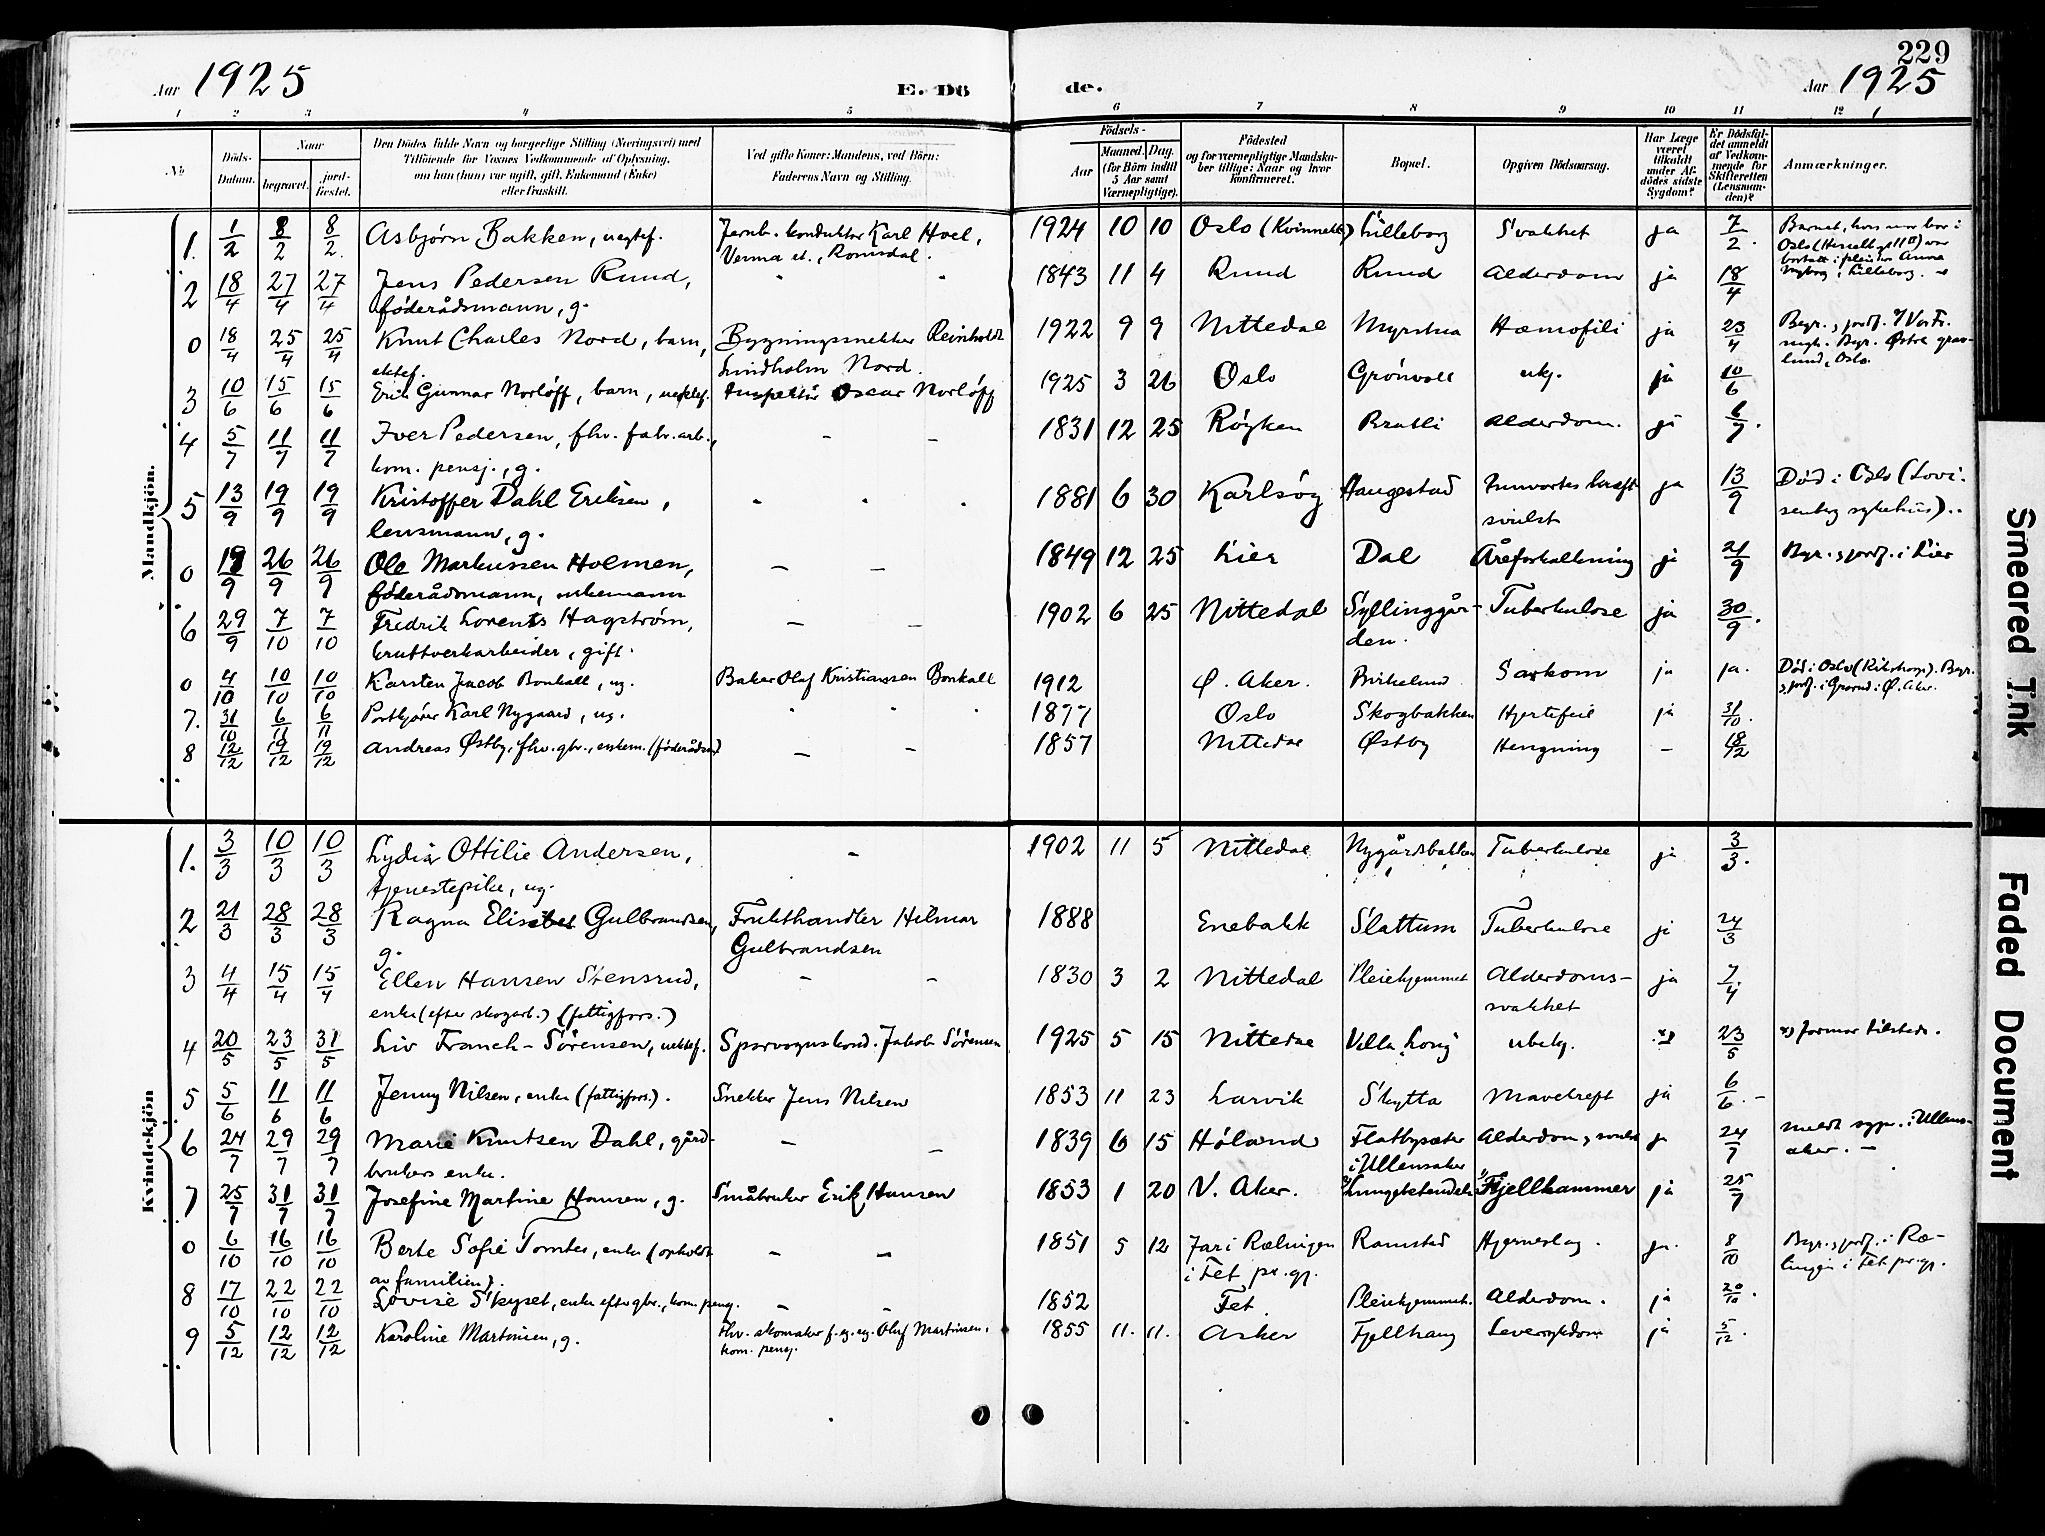 229
Aar 1925
E. Dö
de.
Aar 1925
1 2 3 4 5 6 7 8 9 10 11 12
No
Döds-Datum.
Naar
begravet.
jord-fæstet.
Den Dödes fulde Navn og borgerlige Stilling (Næringsvei) med
Tilföiende for Voxnes Vedkommende af Oplysning,
om han (hun) var ugift, gift, Enkemand (Enke)
eller fraskilt.
Ved gifte Koner: Mandens, ved Börn:
Faderens Navn og Stilling.
Födsels-
Aar
Maaned. Dag.
(for Börn indtil
5 Aar samt
Værnepligtige).
Födested
og for værnepligtige Mandska-
ber tillige: Naar og hvor
konfirmeret.
Bopæl.
Opgiven Dödsaarsag.
Har Læge
været
tilkaldt
under Af-
dödes sidste
Sygdom?
Er Dödsfal-
det anmeldt
af Vedkom-
mende for
Skifteretten
(Lensman-
den)?
Anmærkninger.
Mandkjön.
1. 1/2 8/2 8/2. Asbjørn Bakken, uegtef. Jernb. konduktør Karl Hoel, Verma st., Romsdal. 1924 10 10 Oslo (Kvinnekl) Lilleborg Svakhet ja 7/2. Barnet, hvis mor bor i Oslo
2 18/4 27/4 27/4 Jens Pedersen Rund, føderådsmann, g. 1843 11 4 Rund Rund Alderdom ja 18/4
0 18/4 25/4 25/4 Knut Charles Nord, barn, ektef. Bygningssnekker Reinholdt Lindholm Nord. 1922 9 9 Nittedal Myrstua Hæmofili ja 23/4 Begr. Østre gravlund, Oslo.
3 10/6 15/6 15/6 Erik Gunnar Norløff, barn, uektef. Inspektør Oscar Norløff 1925 3 26 Oslo Grønvoll ukj. ja 10/6
4 5/7 11/7 11/7 Iver Pedersen, fhv. fabr.arb., kom. pensj., g. – – 1831 12 25 Røyken Bratli Alderdom. ja 6/7.
5 13/9 19/9 19/9 Kristoffer Dahl Eriksen, lensmann, g. 1881 6 30 Karlsøy Haugestad Innvortes kræftsvulst ja 13/9 Død i Oslo (Lovisenberg sykehus)..
0 19/9 26/9 26/9 Ole Markussen Holmen, føderådsmann, enkemann – – 1849 12 25 Lier Dal Åreforkalkning ja 21/9 Begr. & jordf. i Lier
6 29/9 7/10 7/10 Fredrik Lorents Hagstrøm, kruttverkarbeider, gift. – – 1902 6 25 Nittedal Syllinggården. Tuberkulose ja 30/9.
0 4/10 10/10 10/10 Karsten Jacob Bonkall, ug. Baker Olaf Kristiansen Bonkall 1912 Ø. Aker. Birkelund Sarkom ja ja. Død i Oslo (Rikshosp). Begr. & jordf. i Grorud i Ø. Aker.
7. 31/10 6/11 6/11 Postkjører Karl Nygaard, ug. 1877 Oslo Skogbakken Hjertefeil ja 31/10.
8 12/12 19/12 19/12 Andreas Østby, fhv. gbr., enkem. (føderådsm) – – 1857 Nittedal Østby Hengning – 18/12
Kvindekjön
1. 3/3 10/3 10/3 Lydia Ottilie Andersen, tjenestepike, ug. – 1902 11 5 Nittedal Nygårdsbakken Tuberkulose ja 3/3.
2 21/3 28/3 28/3 Ragna Elisabet Gulbrandsen, g. Frukthandler Hilmar Gulbrandsen 1888 Enebakk Slattum Tuberkulose ja 24/3
3 4/4 15/4 15/4 Ellen Hansen Stensrud, enke (efter skogarb.) (fattigfors.) – – 1830 3 2 Nittedal Pleiehjemmet Alderdoms-svakhet ja 7/4
4 20/5 23/5 31/5 Liv Franck-Sørensen, uektef. Sporvognskond. Jakob Sørensen 1925 5 15 Nittedal Villa Lorij ubekj. x) 23/5 x) Jormor tilstede.
5 5/6 11/6 11/6 Jenny Nilsen, enke (fattigfors.). Snekker Jens Nilsen 1853 11 23 Larvik Skytta Mavekreft ja 6/6. –
6 24/7 29/7 29/7 Marie Knutsen Dahl, gårdbrukers enke. – – 1839 6 15 Høland Flatbysæter i Ullensaker Alderdom ja 24/7 i Ullensaker. –
7 25/7 31/7 31/7 Josefine Martine Hansen, g. Småbruker Erik Hansen 1853 1 20 V. Aker. Lungebetendelse Fjellhammer ja 25/7
0 6/10 16/10 16/10 Berte Sofie Tomter, enke (opholdt av familien). – – 1851 5 12 Jar i Rælingen i Fet pr.gj. Ramstad Hjerneslag. ja. 8/10 Begr. & jordf. i Rælingen i Fet pr.gj.
8 17/10 22/10 22/10 Lovise Skyset, enke efter gbr., kom. pensj. – – 1852 Fet Pleiehjemmet. Alderdom. ja 20/10.
9 5/12 12/12 12/12 Karoline Martinsen, g. Fhv. skomaker Oluf Martinsen, kom. pensj. 1855 11. 11. Asker Fjellhaug Leversykdom ja 5/12.
Smeared Ink
Faded Document